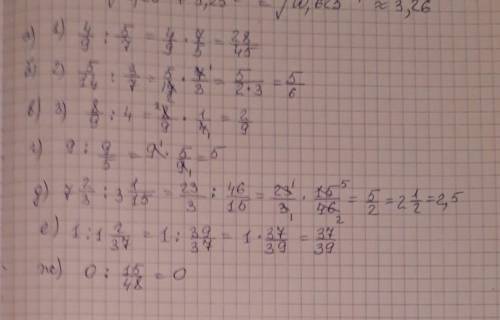 = √10,625 ≈ 3,26
а) 1) 4/9 : 5/7 = 4/9 · 7/5 = 28/45
б) 2) 5/14 : 3/7 = 5/14 · 7/3 = 5/2·3 = 5/6
в) 3) 8/9 : 4 = 8/9 · 1/4 = 2/9
г) 9 : 9/5 = 9 · 5/9 = 5
д) 7 2/3 : 3 1/15 = 23/3 : 46/15 = 23/3 · 15/46 = 5/2 = 2 1/2 = 2,5
е) 1 : 1 2/37 = 1 : 39/37 = 1 · 37/39 = 37/39
ж) 0 : 15/48 = 0